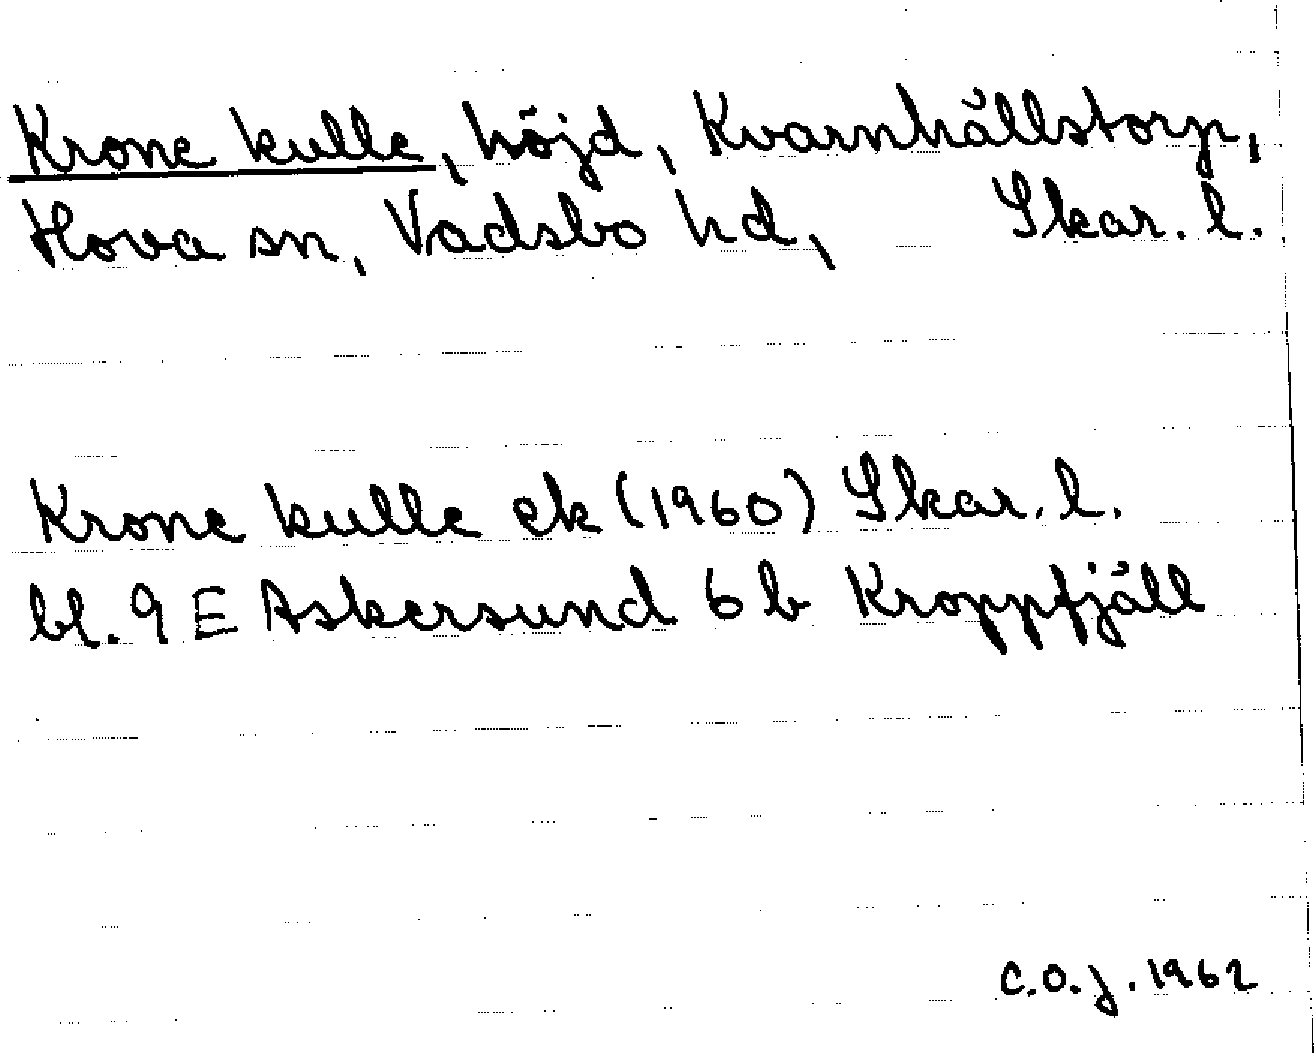 Krone kulle, höjd, Kvarnhällstorp,
Hova sn, Vadsbo hd, Skar. l.
Krone kulle ek (1960) Skar. l.
bl. 9 E Askersund 6 b Kroppfjäll
C.O.J. 1962